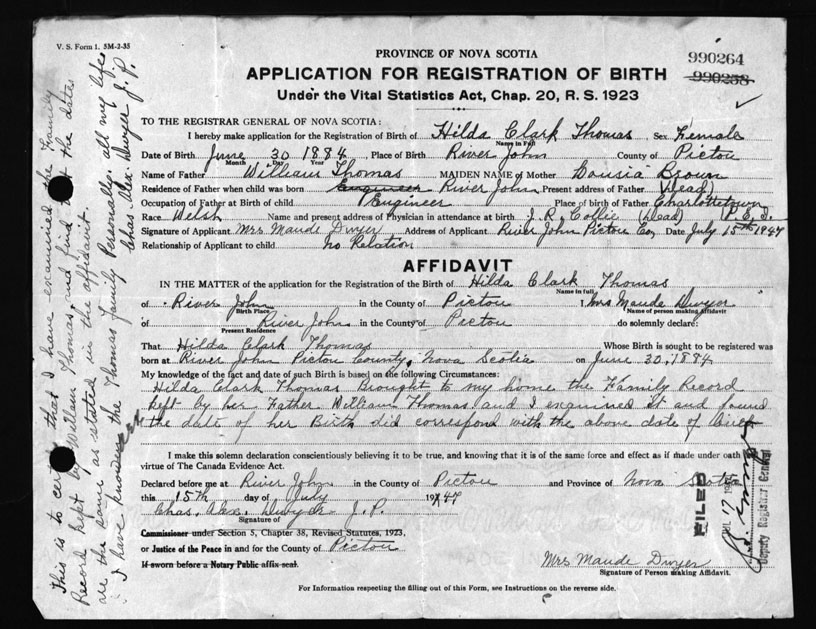 V. S. Form 1. 5M-2-35
PROVINCE OF NOVA SCOTIA
990264
990258
APPLICATION FOR REGISTRATION OF BIRTH
Under the Vital Statistics Act, Chap. 20, R. S. 1923
TO THE REGISTRAR GENERAL OF NOVA SCOTIA:
I hereby make application for the Registration of Birth of Hilda Clark Thomas Sex Female
Name in Full
Date of Birth June 30 1884, Place of Birth River John County of Pictou
Month Day Year
Name of Father William Thomas MAIDEN NAME of Mother Lousia Brown
Residence of Father when child was born Engineer River John Present address of Father (dead)
Occupation of Father at Birth of child Engineer Place of birth of Father Charlottetown
Race Welsh Name and present address of Physician in attendance at birth J. R. Collie (dead) (P.E.I.
Signature of Applicant Mrs Maude Dwyer Address of Applicant River John Pictou Co, Date July 15th 1947
Relationship of Applicant to child no Relation
AFFIDAVIT
IN THE MATTER of the application for the Registration of the Birth of Hilda Clark Thomas
Name in full
of River John in the County of Pictou I, Mrs Maude Dwyer
Birth Place Name of person making Affidavit
of River John in the County of Pictou do solemnly declare:
Present Residence
That Hilda Clark Thomas Whose Birth is sought to be registered was
born at River John Pictou County, Nova Scotia on June 30, 1884
My knowledge of the fact and date of such Birth is based on the following Circumstances:
Hilda Clark Thomas Brought to my home the Family Record
kept by her Father William Thomas and I examined it and found
the date of her Birth did correspond with the above date of Birth
I make this solemn declaration conscientiously believing it to be true, and knowing that it is of the same force and effect as if made under oath by
virtue of The Canada Evidence Act.
Declared before me at River John in the County of Pictou and Province of Nova Scotia
this 15th day of July 1947
Chas. Alex. Dwyer J. P.
Signature of
Commissioner under Section 5, Chapter 38, Revised Statutes, 1923,
or Justice of the Peace in and for the County of Pictou
If sworn before a Notary Public affix seal.
Mrs Maude Dwyer
Signature of Person making Affidavit.
For Information respecting the filling out of this Form, see Instructions on the reverse side.
This is to certify that I have examined the Family
Record kept by William Thomas, and find the dates
are the same as stated in the affidavit.
I have known the Thomas Family Personally all my life
Chas. Alex. Dwyer J. P.
FILED
JUL 17
Deputy Registrar General